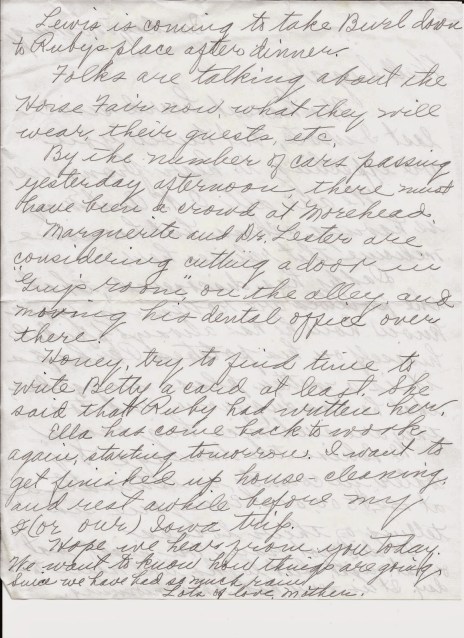 Lewis is coming to take Burl down
to Ruby's place after dinner.
Folks are talking about the
Horse Fair now, what they will
wear, their guests, etc.
By the number of cars passing
yesterday afternoon, there must
have been a crowd at Morehead.
Marguerite and Dr. Lester are
considering cutting a door in
"Guy's room", on the alley, and
moving his dental office over
there.
Honey, try to find time to
write Betty a card at least. She
said that Ruby had written her.
Ella has come back to work
again, starting tomorrow. I want to
get finished up house-cleaning,
and rest awhile before my
(or our) Iowa trip.
Hope we hear from you today.
We want to know how things are going,
since we have had so much rain.
Lots of love, Mother.